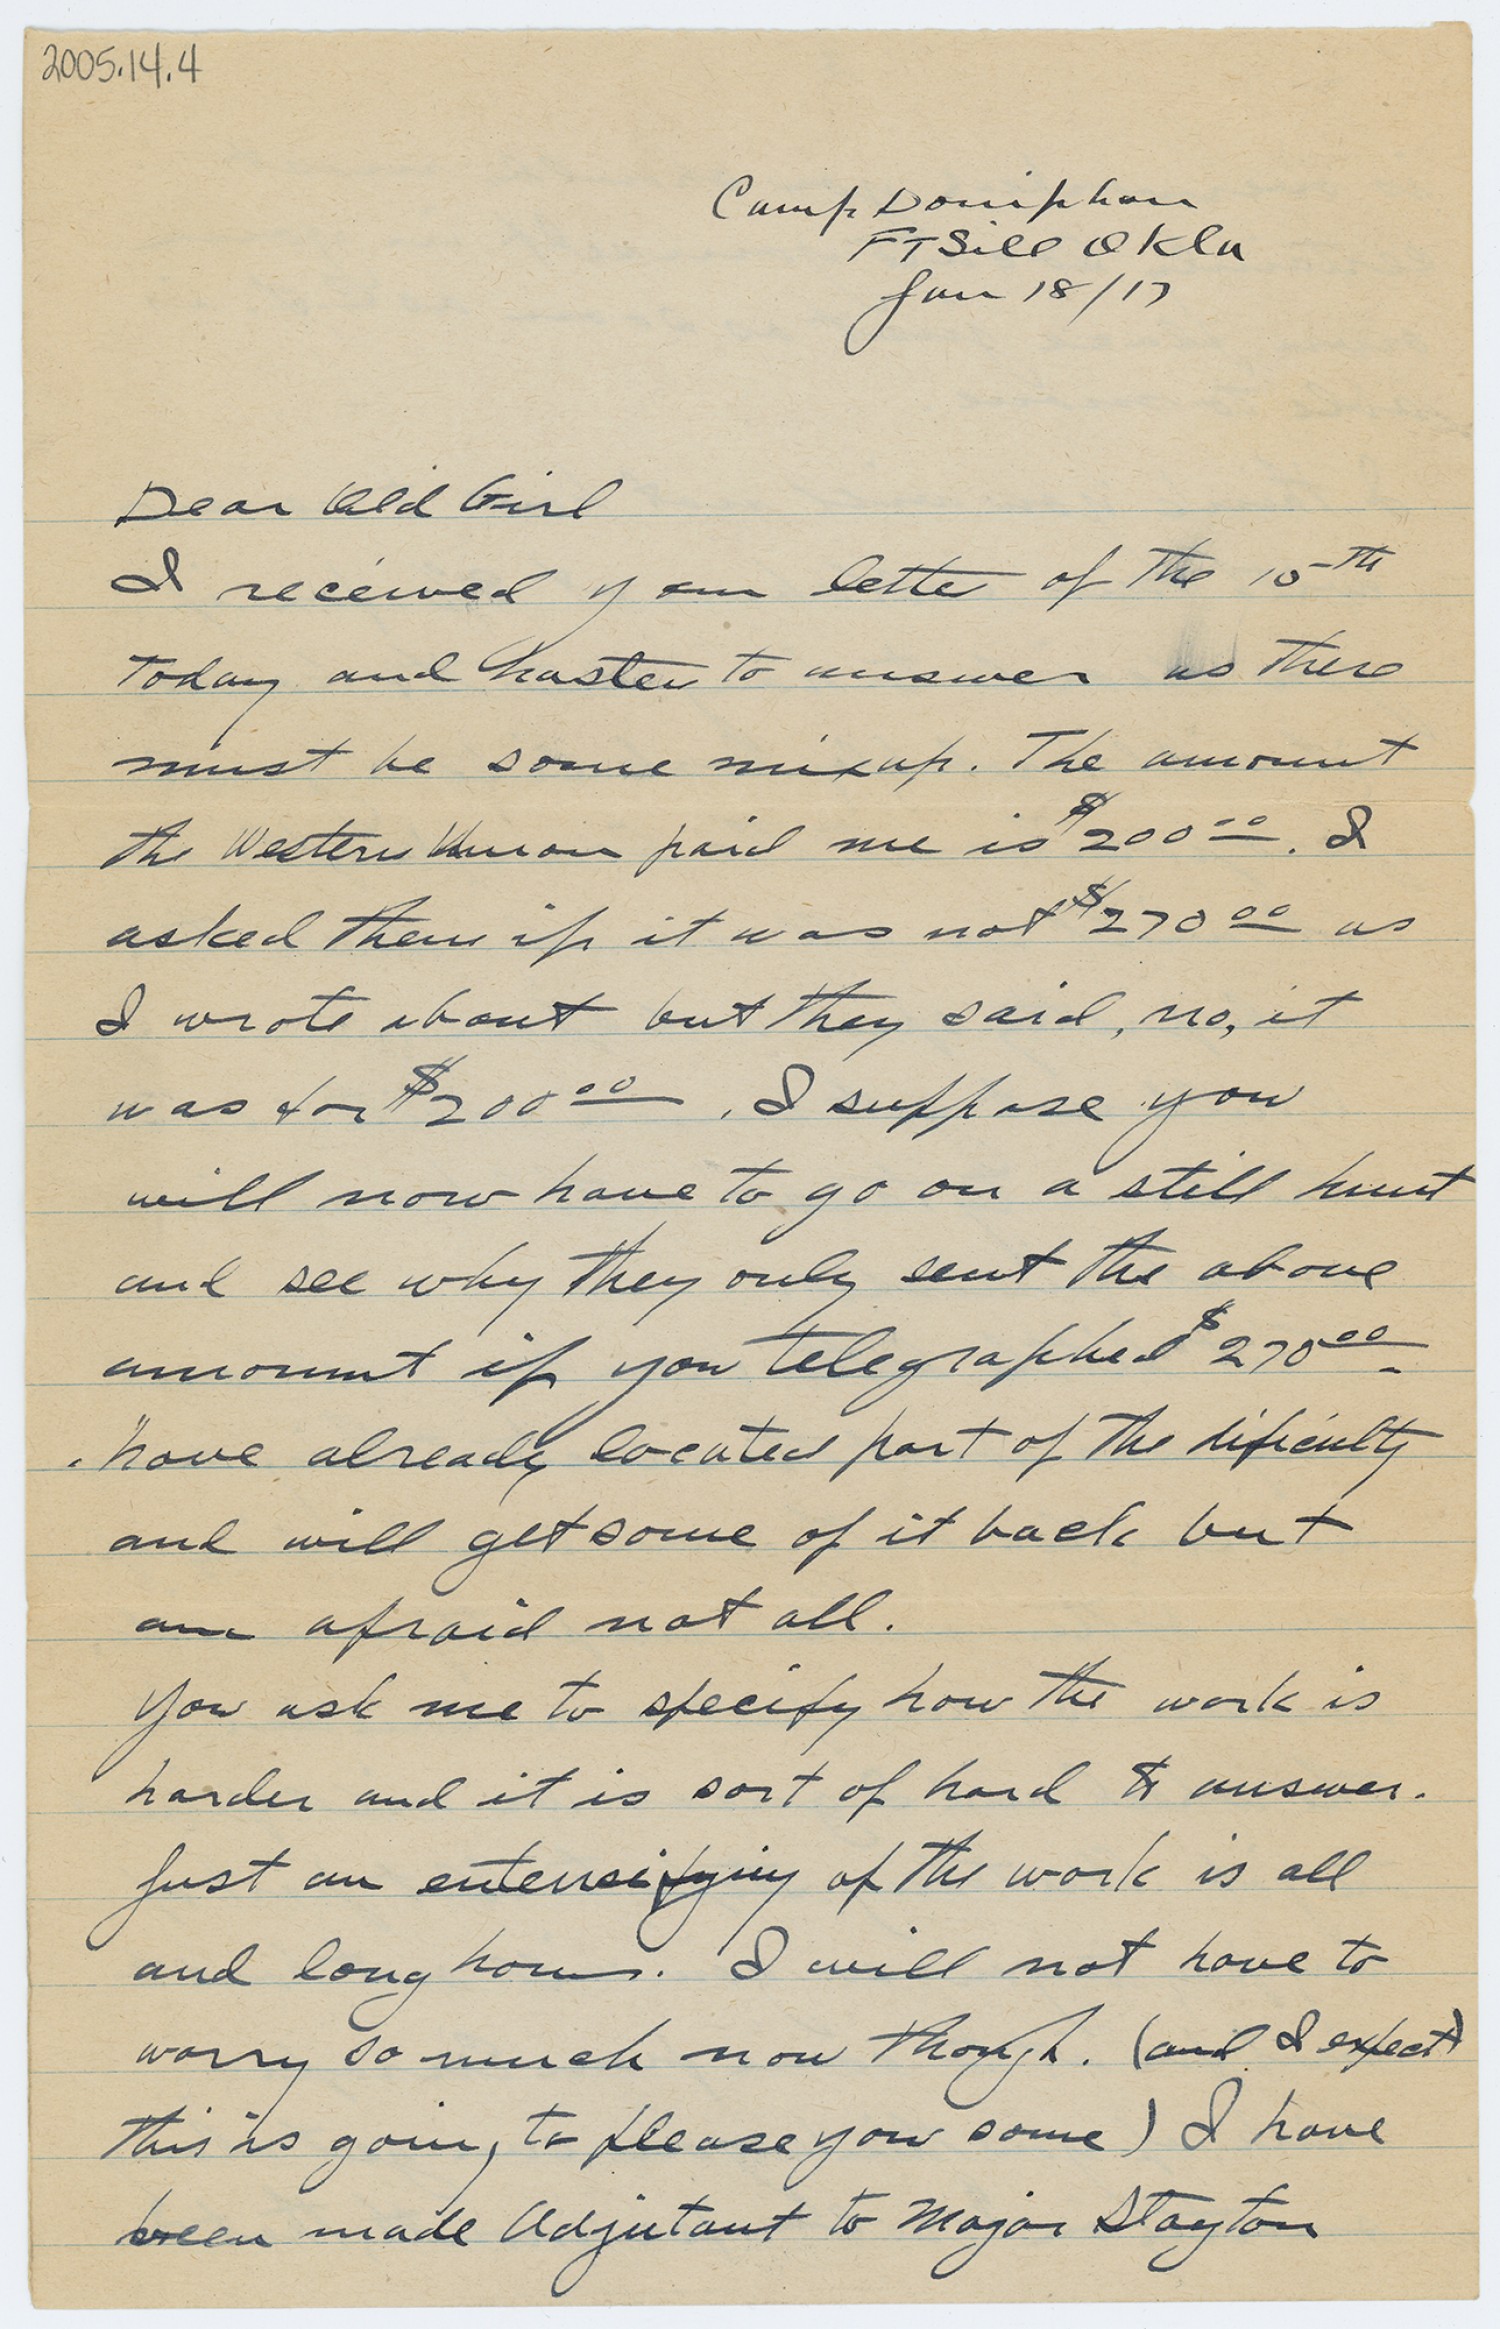 2005.14.4
Camp Doniphan
FT Sill Okla
Jan 18/17
Dear Old Girl
I received your letter of the 15th
today and hasten to answer as there
must be some mixup. The amount
the Western Union paid me is $200.00. I
asked them if it was not $270.00 as
I wrote about but they said, no, it
was for $200.00. I suppose you
will now have to go on a still hunt
and see why they only sent the above
amount if you telegraphed $270.00.
have already located part of the dificulty
and will get some of it back but
am afraid not all.
You ask me to specify how the work is
harder and it is sort of hard to answer.
Just an entensifying of the work is all
and long hours. I will not have to
worry so much now though. (and I expect
this is going to please you some) I have
been made Adjutant to Major Stayton